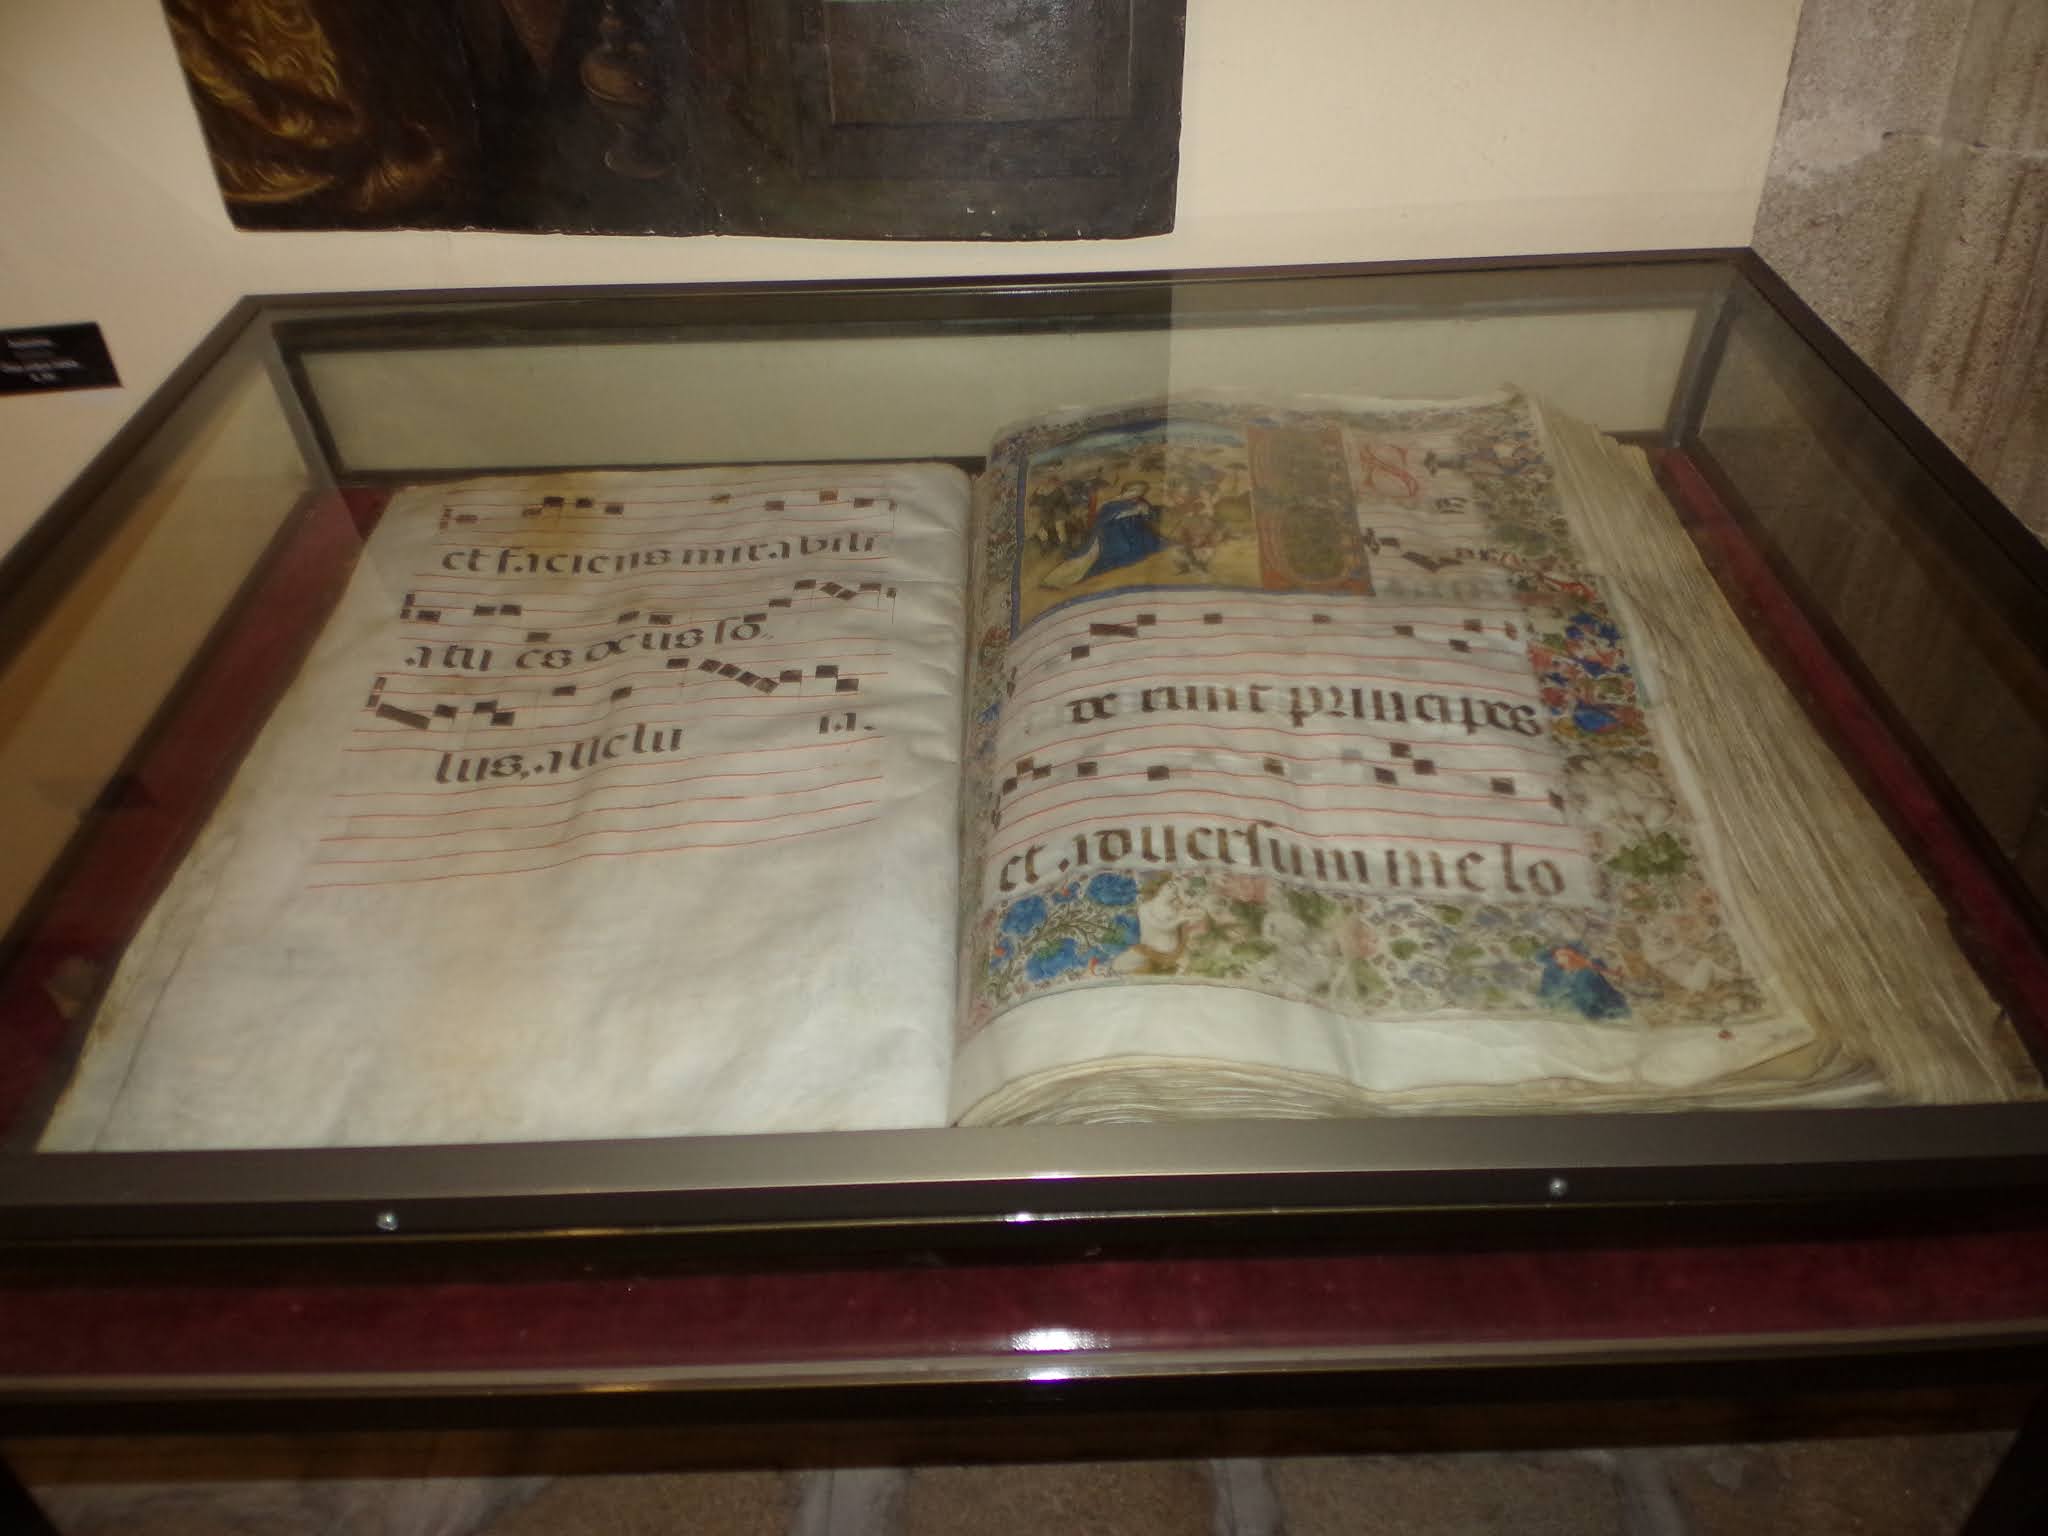 et faciens mirabili
a tu es deus so
lus, allelu ia.
de runt principes
et aduersum me lo